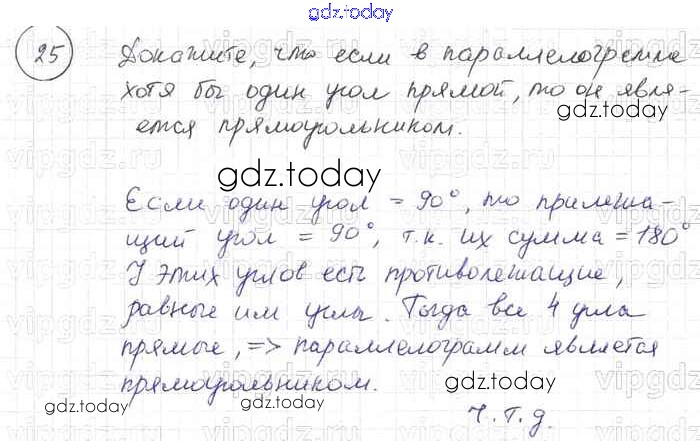 gdz.today
25 Докажите, что если в параллелограмме
хотя бы один угол прямой, то он явля-
ется прямоугольником.
gdz.today
gdz.today
Если один угол = 90°, то прилежа-
щий угол = 90°, т.к. их сумма = 180°
У этих углов есть противолежащие,
равные им углы. Тогда все 4 угла
прямые, => параллелограмм является
прямоугольником.
gdz.today
gdz.today
ч.т.д.